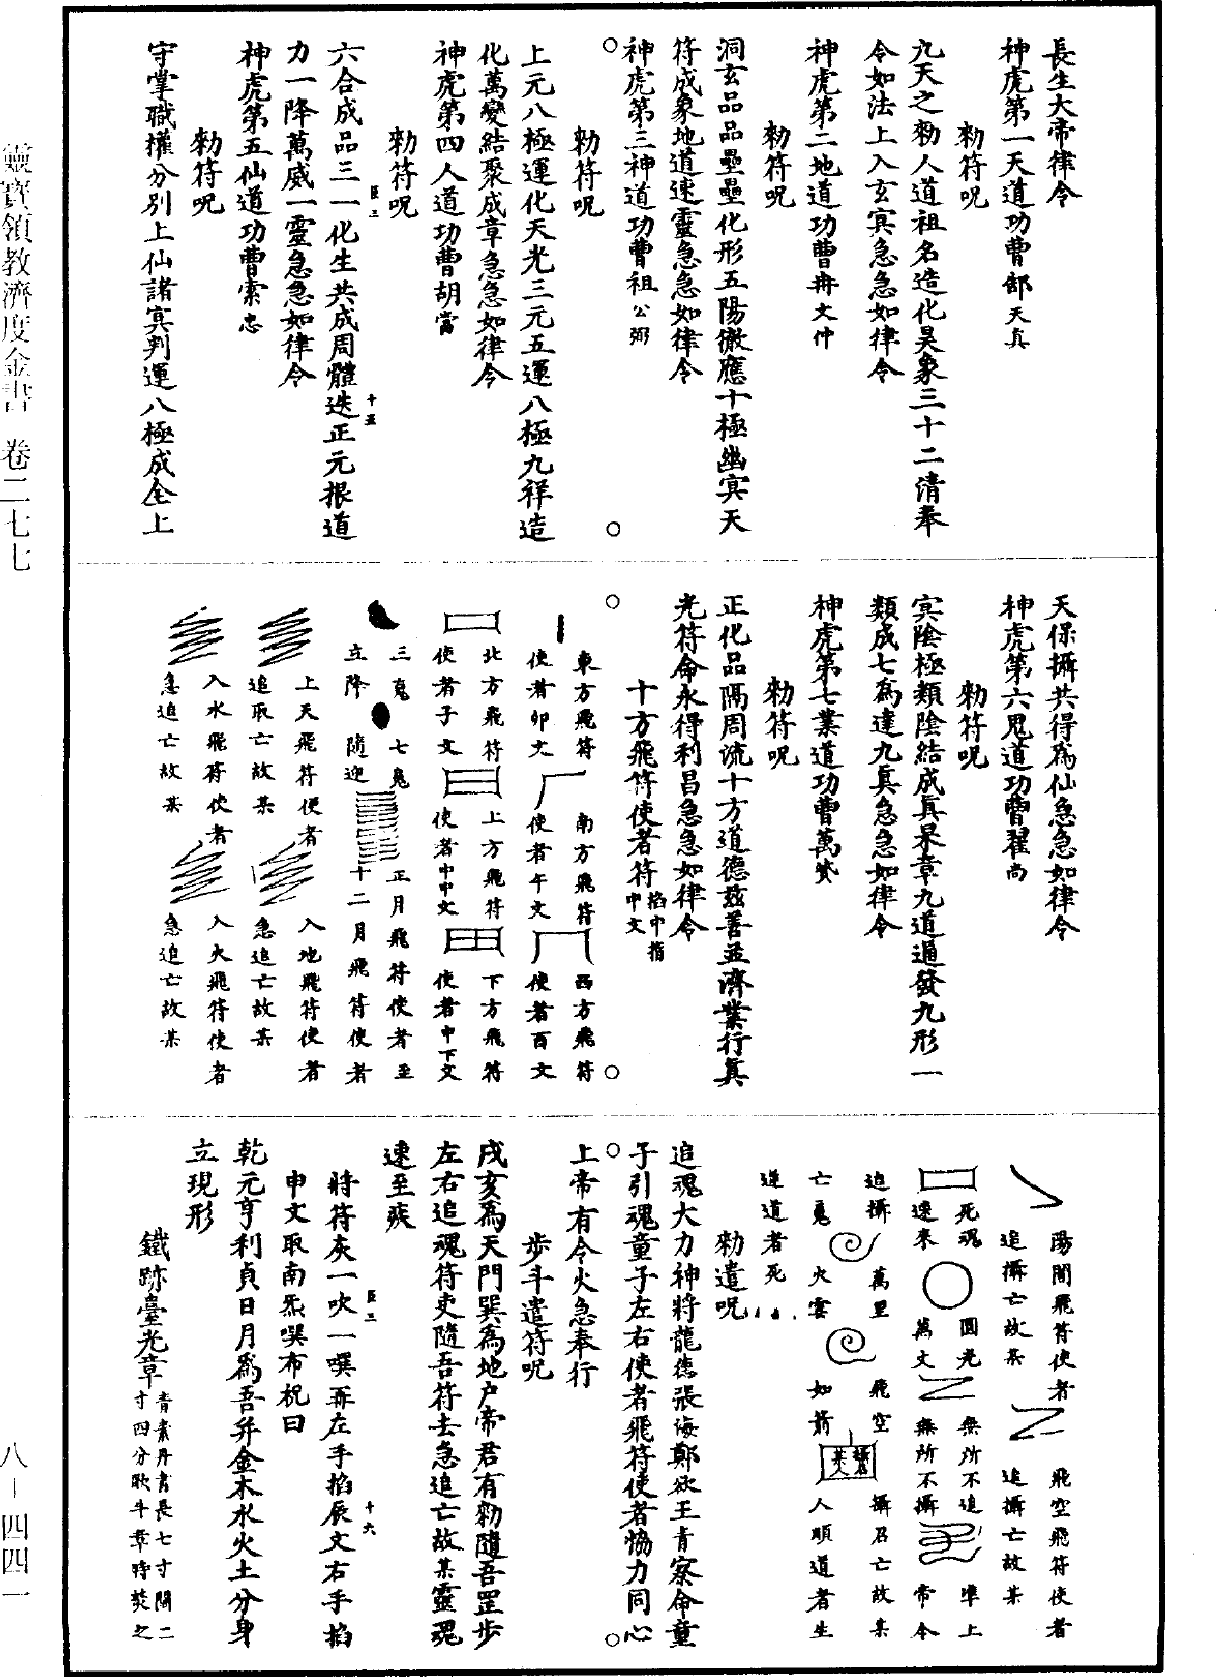 長生大帝律令
神虎第一天道功曹郜天真
勑符呪
九天之勑人道祖名造化昊象三十二清奉
令如法上入玄冥急急如律令
神虎第二地道功曹冉文仲
勑符呪
洞玄品品壘壘化形五陽徹應十極幽冥天
符成象地道速靈急急如律令
神虎第三神道功曹祖公弼
勑符呪
上元八極運化天光三元五運八極九祥造
化萬變結聚成章急急如律令
神虎第四人道功曹胡當
勑符呪
六合成品三一化生共成周體迭正元根道
力一降萬威一靈急急如律令
神虎第五仙道功曹索忠
勑符呪
守掌職權分別上仙諸冥判運八極成全上
十五
天保攝共得為仙急急如律令
神虎第六鬼道功曹翟尚
勑符呪
冥陰極類陰結成真杲章九道遍發九形一
類成七為達九真急急如律令
神虎第七業道功曹萬贇
勑符呪
正化品隔周流十方道德茲善並濟業行真
光符命永得利昌急急如律令
十方飛符使者符掐中指中文
東方飛符使者卯文
南方飛符使者午文
西方飛符使者酉文
北方飛符使者子文
上方飛符使者中中文
下方飛符使者中下文
三魂
七魄
正月飛符使者至
立降
隨迎
十二月飛符使者
上天飛符使者追取亡故某
入地飛符使者急追亡故某
入水飛符使者急追亡故某
入火飛符使者急追亡故某
陽間飛符使者追攝亡故某
飛空飛符使者追攝亡故某
死魂速來
圓光萬丈
無所不追無所不攝
準上帝令
追攝亡魂
萬里火雲
飛空如箭
攝召亡故某
人順道者生
逆道者死
勑遣呪
追魂大力神將龍德張海鄭欲王青察命童
子引魂童子左右使者飛符使者協力同心
上帝有令火急奉行
步斗遣符呪
戌亥為天門巽為地户帝君有勑隨吾罡步
左右追魂符吏隨吾符去急追亡故某靈魂
速至疾
將符灰一吹一噀再左手掐辰文右手掐
十六
申文取南炁噀布祝曰
乾元亨利貞日月爲吾并金木水火土分身
立現形
鐵跡臺光章青素丹書長七寸闊二寸四分歌斗章時焚之
靈寶領教濟度金書 卷二七七
八—四四一